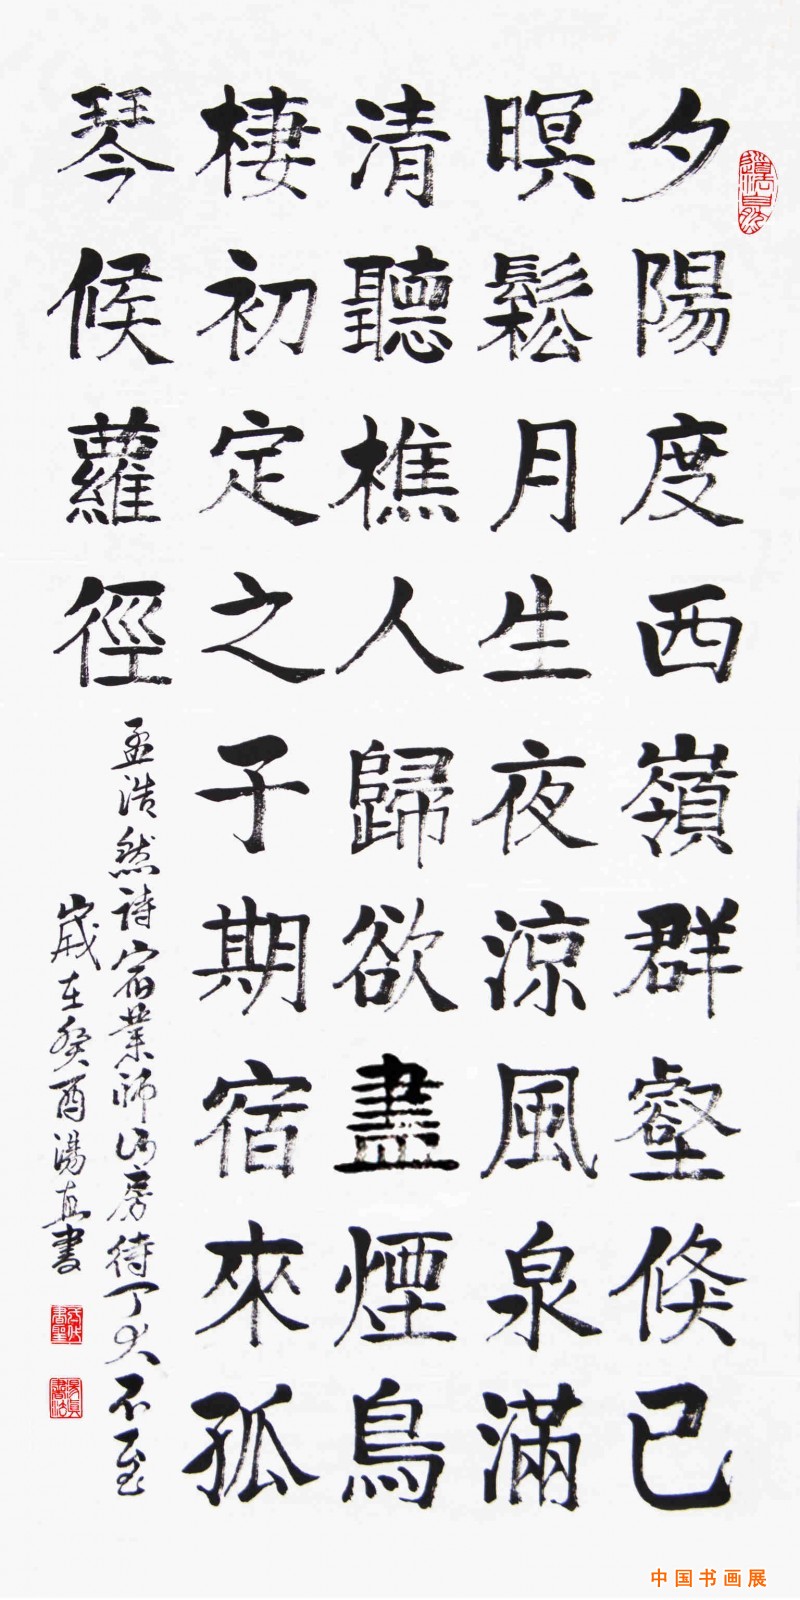 夕陽度西嶺群壑倏已
暝鬆月生夜涼風泉滿
清聽樵人歸欲盡煙鳥
棲初定之子期宿來孤
琴候蘿徑
孟浩然詩宿業師山房待丁大不至
歲在癸酉湯真書
道法自然
中国书画展